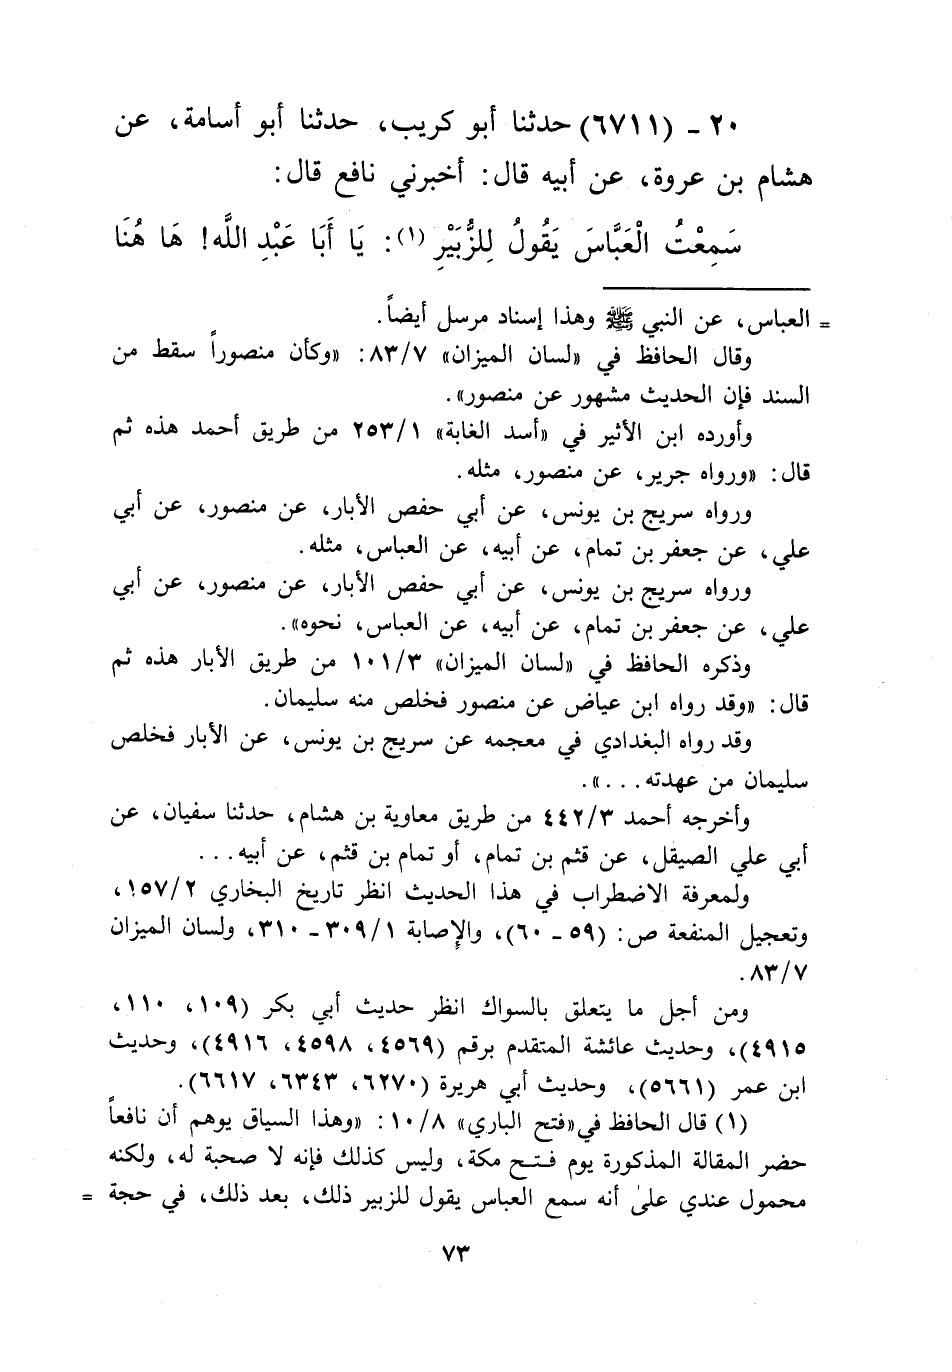 ٢٠ ـ (٦٧١١) حدثنا أبو كريب، حدثنا أبو أسامة، عن
هشام بن عروة، عن أبيه قال: أخبرني نافع قال:
سَمِعْتُ الْعَبَّاسَ يَقُولُ لِلزُّبَيْرِ (١): يَا أَبَا عَبْدِ اللهِ! هَا هُنَا
= العباس، عن النبي ﷺ وهذا إسناد مرسل أيضاً.
وقال الحافظ في «لسان الميزان» ٨٣/٧: «وكأن منصوراً سقط من
السند فإن الحديث مشهور عن منصور».
وأورده ابن الأثير في «أسد الغابة» ٢٥٣/١ من طريق أحمد هذه ثم
قال: «ورواه جرير، عن منصور، مثله.
ورواه سريج بن يونس، عن أبي حفص الأبار، عن منصور، عن أبي
علي، عن جعفر بن تمام، عن أبيه، عن العباس، مثله.
ورواه سريج بن يونس، عن أبي حفص الأبار، عن منصور، عن أبي
علي، عن جعفر بن تمام، عن أبيه، عن العباس، نحوه».
وذكره الحافظ في «لسان الميزان» ١٠١/٣ من طريق الأبار هذه ثم
قال: «وقد رواه ابن عياض عن منصور فخلص منه سليمان.
وقد رواه البغدادي في معجمه عن سريج بن يونس، عن الأبار فخلص
سليمان من عهدته...».
وأخرجه أحمد ٤٤٢/٣ من طريق معاوية بن هشام، حدثنا سفيان، عن
أبي علي الصيقل، عن قثم بن تمام، أو تمام بن قثم، عن أبيه...
ولمعرفة الاضطراب في هذا الحديث انظر تاريخ البخاري ١٥٧/٢،
وتعجيل المنفعة ص: (٥٩ ـ ٦٠)، والإصابة ٣٠٩/١ ـ ٣١٠، ولسان الميزان
٨٣/٧.
ومن أجل ما يتعلق بالسواك انظر حديث أبي بكر (١٠٩، ١١٠،
٤٩١٥)، وحديث عائشة المتقدم برقم (٤٥٦٩، ٤٥٩٨، ٤٩١٦)، وحديث
ابن عمر (٥٦٦١)، وحديث أبي هريرة (٦٢٧٠، ٦٣٤٣، ٦٦١٧).
(١) قال الحافظ في «فتح الباري» ١٠/٨: «وهذا السياق يوهم أن نافعاً
حضر المقالة المذكورة يوم فتح مكة، وليس كذلك فإنه لا صحبة له، ولكنه
محمول عندي علىٰ أنه سمع العباس يقول للزبير ذلك، بعد ذلك، في حجة =
٧٣